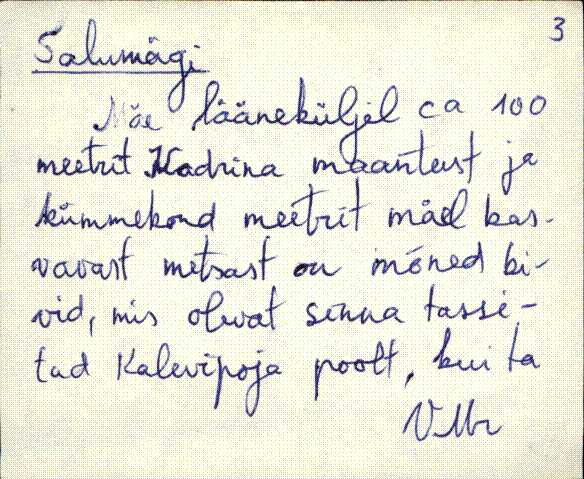 3
Salumägi
Mäe lääneküljel ca 100
meetrit Kadrina maanteest ja
kümmekond meetrit mäel kas-
vavast metsast on mõned ki-
vid, mis olevat sinna tassi-
tud Kalevipoja poolt, kui ta